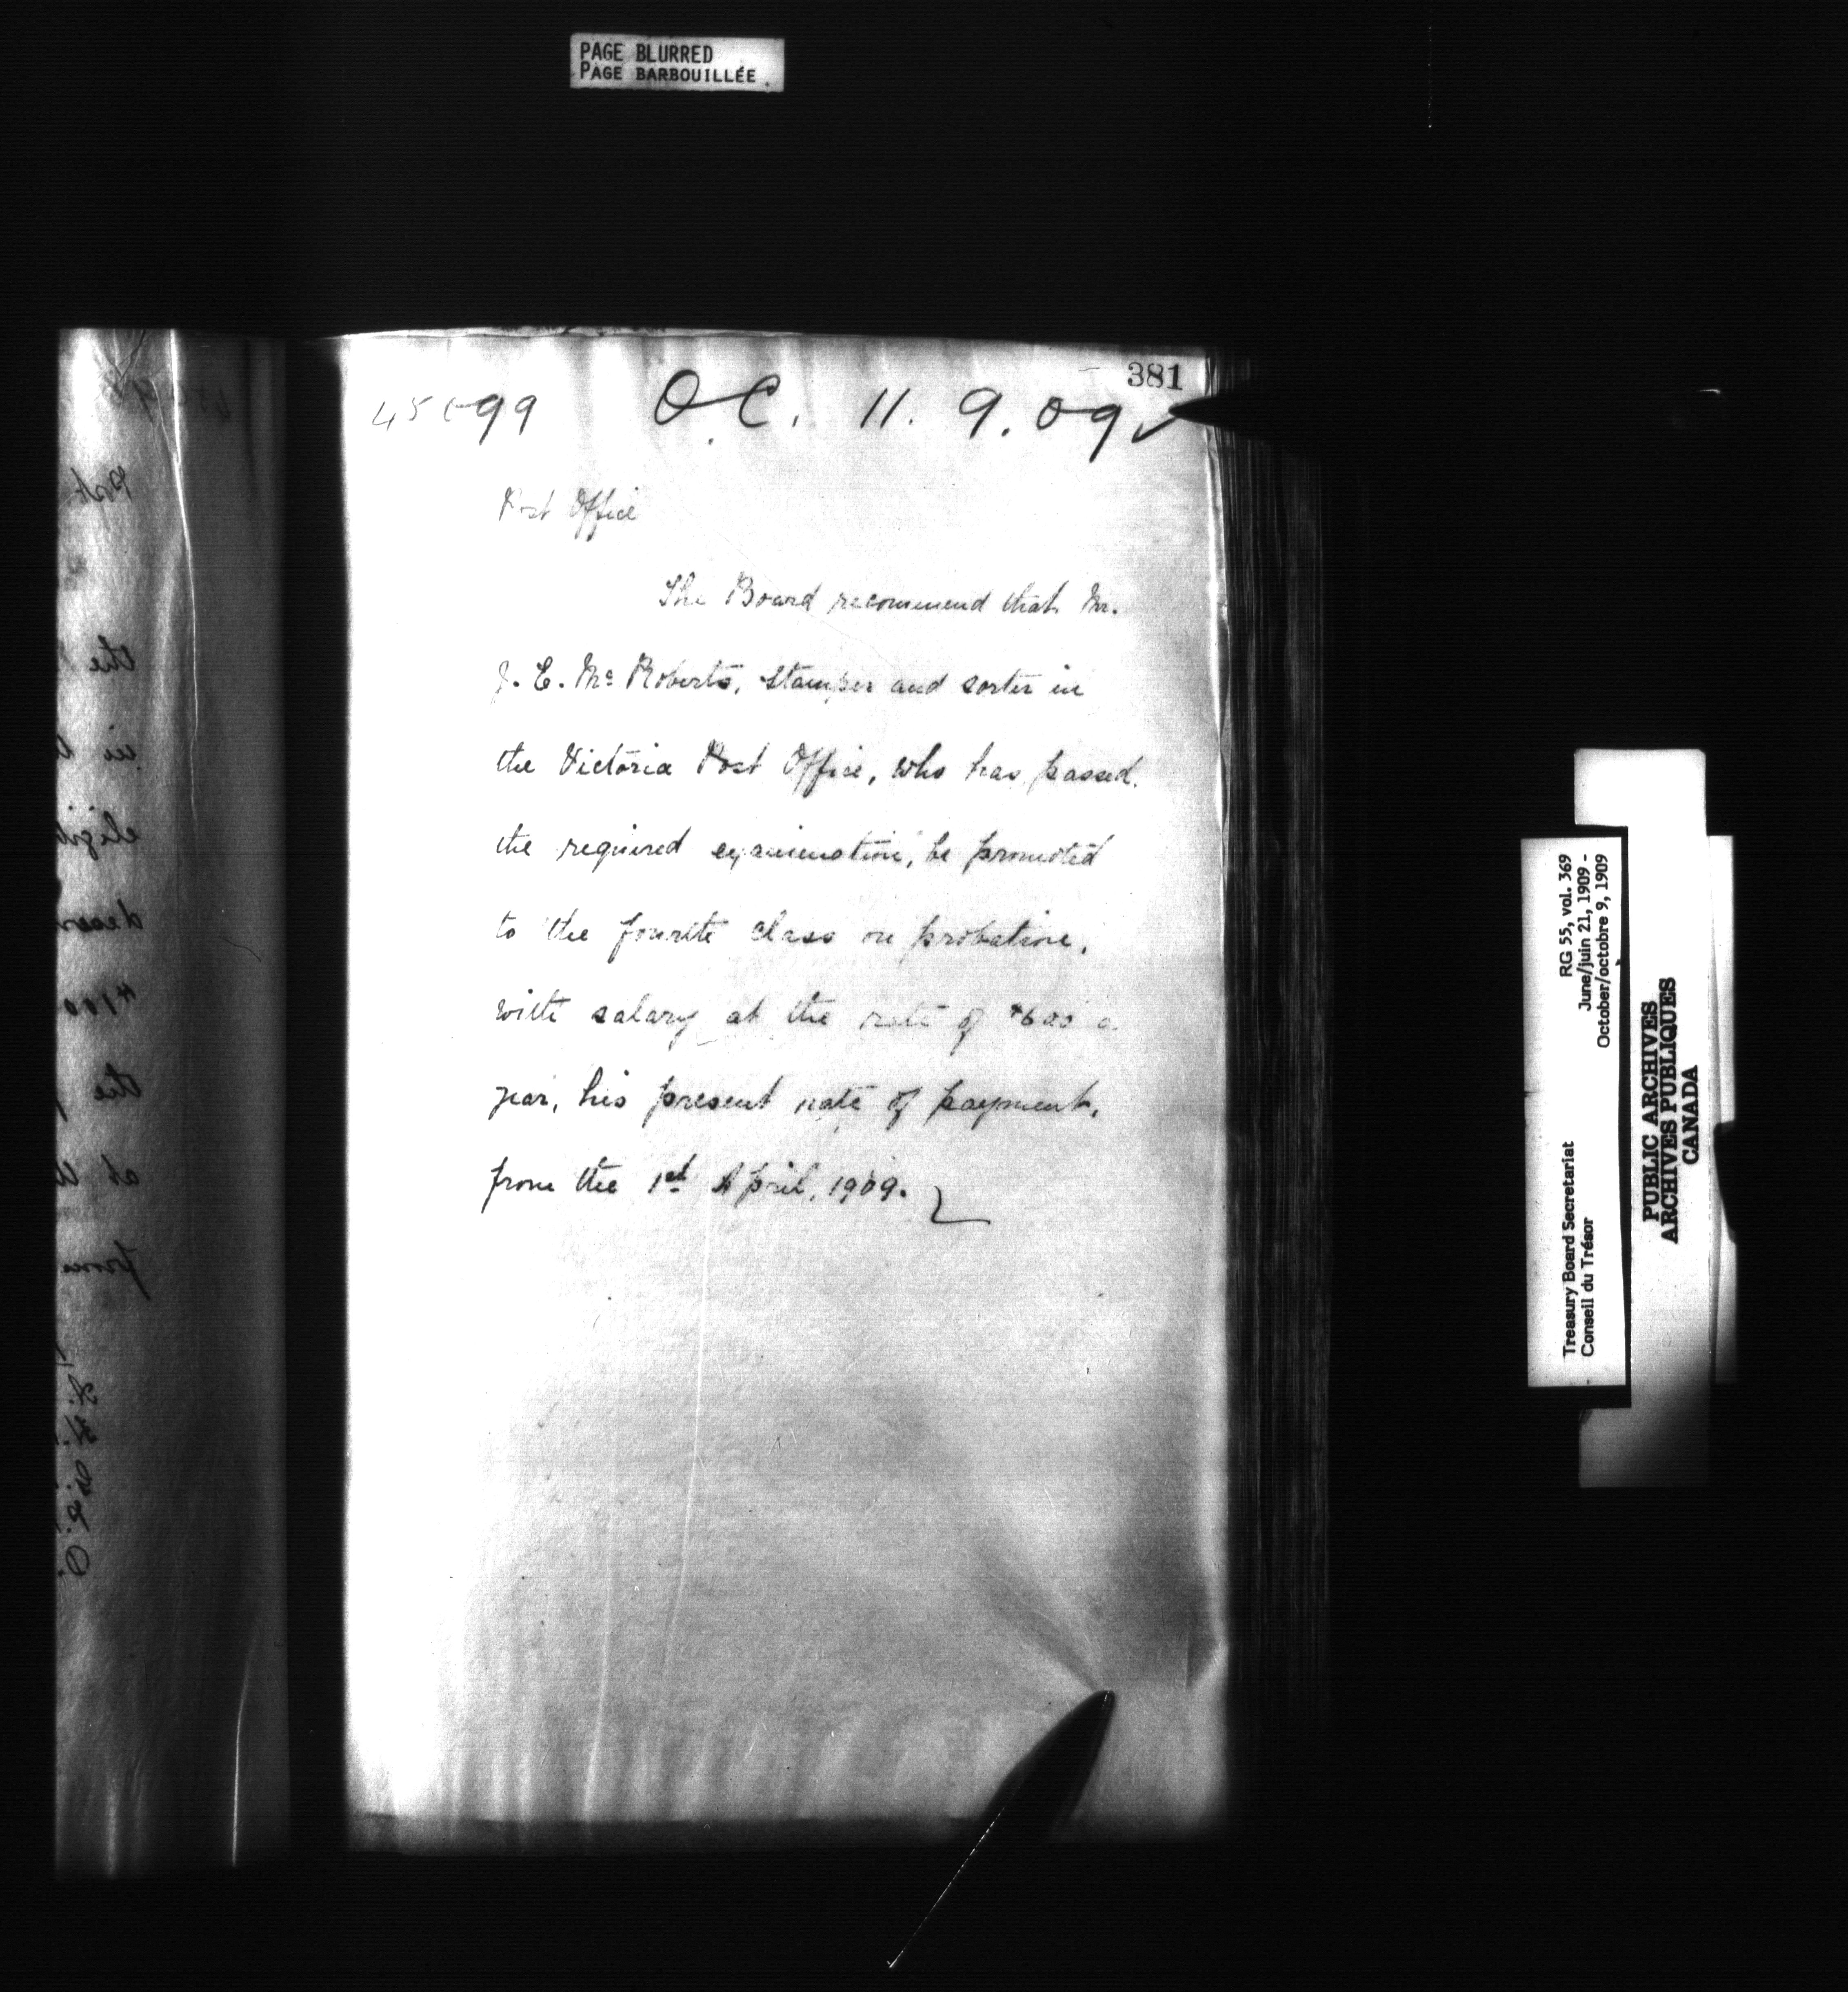 PAGE BLURRED
PAGE BARBOUILLÉE
381
O.C. 11. 9. 09
Post Office
The Board recommend that Mr.
J. E. Mc Roberts, stamper and sorter in
the Victoria Post Office, who has passed
the required examination, be promoted
to the fourth class on probation,
with salary at the rate of $600 a
year, his present rate of payment,
from the 1st April, 1909.
RG 55, vol. 369
June/juin 21, 1909 -
October/octobre 9, 1909
Treasury Board Secretariat
Conseil du Trésor
PUBLIC ARCHIVES
ARCHIVES PUBLIQUES
CANADA